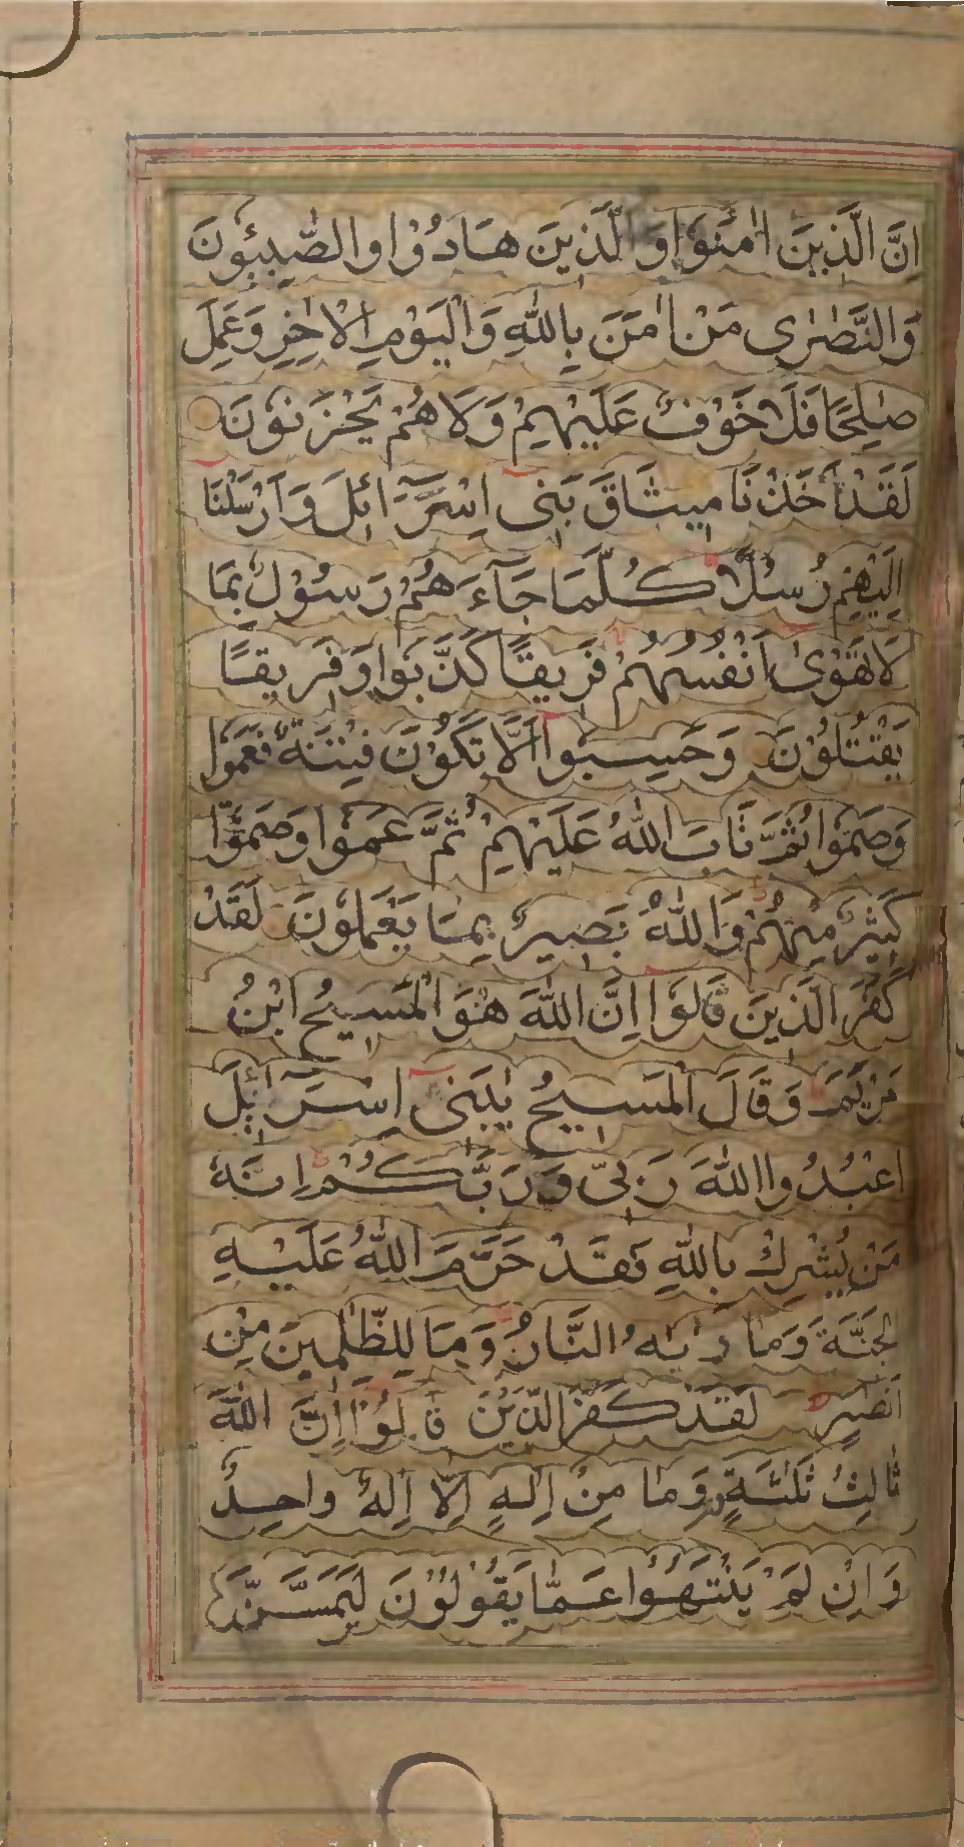 اِنَّ الَّذِيْنَ اٰمَنُوْا وَالَّذِيْنَ هَادُوْا وَالصّٰبِـُٔوْنَ
وَالنَّصٰرٰى مَنْ اٰمَنَ بِاللّٰهِ وَالْيَوْمِ الْاٰخِرِ وَعَمِلَ
صٰلِحًا فَلَا خَوْفٌ عَلَيْهِمْ وَلَا هُمْ يَحْزَنُوْنَ
لَقَدْ اَخَذْنَا مِيثَاقَ بَنِىْٓ اِسْرَٓائِلَ وَاَرْسَلْنَا
اِلَيْهِمْ رُسُلًا كُلَّمَا جَآءَهُمْ رَسُوْلٌ بِمَا
لَا تَهْوٰىٓ اَنْفُسُهُمْ فَرِيقًا كَذَّبُوا وَفَرِيقًا
يَقْتُلُوْنَ وَحَسِبُوْٓا اَلَّا تَكُوْنَ فِتْنَةٌ فَعَمُوْا
وَصَمُّوْا ثُمَّ تَابَ اللّٰهُ عَلَيْهِمْ ثُمَّ عَمُوْا وَصَمُّوْا
كَثِيْرٌ مِنْهُمْ وَاللّٰهُ بَصِيرٌ بِمَا يَعْمَلُوْنَ لَقَدْ
كَفَرَ الَّذِيْنَ قَالُوْٓا اِنَّ اللّٰهَ هُوَ الْمَسِيْحُ ابْنُ
مَرْيَمَ وَقَالَ الْمَسِيحُ يٰبَنِىْٓ اِسْرَٓائِلَ
اعْبُدُوا اللّٰهَ رَبِّىْ وَرَبَّكُمْ اِنَّهٗ
مَنْ يُّشْرِكْ بِاللّٰهِ فَقَدْ حَرَّمَ اللّٰهُ عَلَيْهِ
الْجَنَّةَ وَمَا وٰىهُ النَّارُ وَمَا لِلظّٰلِمِينَ مِنْ
اَنْصَارٍ لَقَدْ كَفَرَ الَّذِيْنَ قَالُوْٓا اِنَّ اللّٰهَ
ثَالِثُ ثَلٰثَةٍ وَمَا مِنْ اِلٰهٍ اِلَّا اِلٰهٌ وَاحِدٌ
وَاِنْ لَمْ يَنْتَهُوْا عَمَّا يَقُوْلُوْنَ لَيَمَسَّنَّ